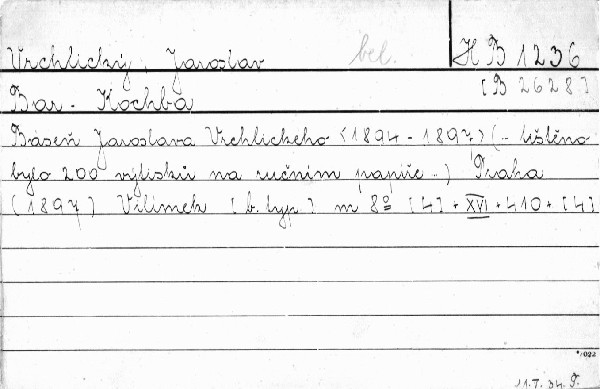 Vrchlický, Jaroslav bel. H B 1236
Bar-Kochba [B 2628]
Báseň Jaroslava Vrchlického <1894-1897> (- tištěno
bylo 200 výtisků na ručním papíře -) Praha
(1897) Vilímek [b. typ.] m 8º [4] + XVI + 410 + [4]
*1022
11.7.34.